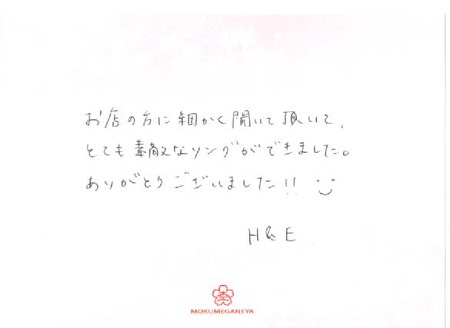 お店の方に細かく聞いて頂いて、
とても素敵なリングができました。
ありがとうございました!!
H&E
MOKUMEGANEYA